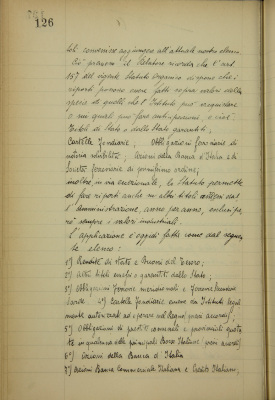 126
tili convenisse aggiungere all'attuale nostro elenco.
Ciò premesso il Relatore ricorda che l'art.
157 del vigente Statuto Organico dispone che i
riporti possono essere fatti sopra valori della
specie di quelli che l'Istituto può acquistare
o sui quali può fare anticipazioni e cioè:
Titoli di Stato o dallo Stato garantiti,
Cartelle fondiarie, Obbligazioni fondiarie di
notoria solidità, Azioni della Banca d'Italia e di
Società ferroviarie di primissimo ordine;
inoltre, in via eccezionale, lo Statuto permette
di fare riporti anche su altri titoli
l'amministrazione, anno per anno,
sempre i valori industriali.
L'applicazione è oggidì fatta come dal seguen
te elenco:
1°) Rendite di Stato e Buoni del Tesoro;
2°) Altri titoli emessi o garantiti dallo Stato;
3°) Obbligazioni Ferrovie meridionali e Ferrovie Secondarie
Sarde 4°) Cartelle Fondiarie emesse da Istituti legal
mente autorizzati ad operare nel Regno
5°) Obbligazioni di prestiti comunali e provinciali quota
te in qualcuna delle principali Borse Italiane
6°) Azioni della Banca d'Italia
7°) Azioni Banca Commerciale Italiana e Credito Italiano,